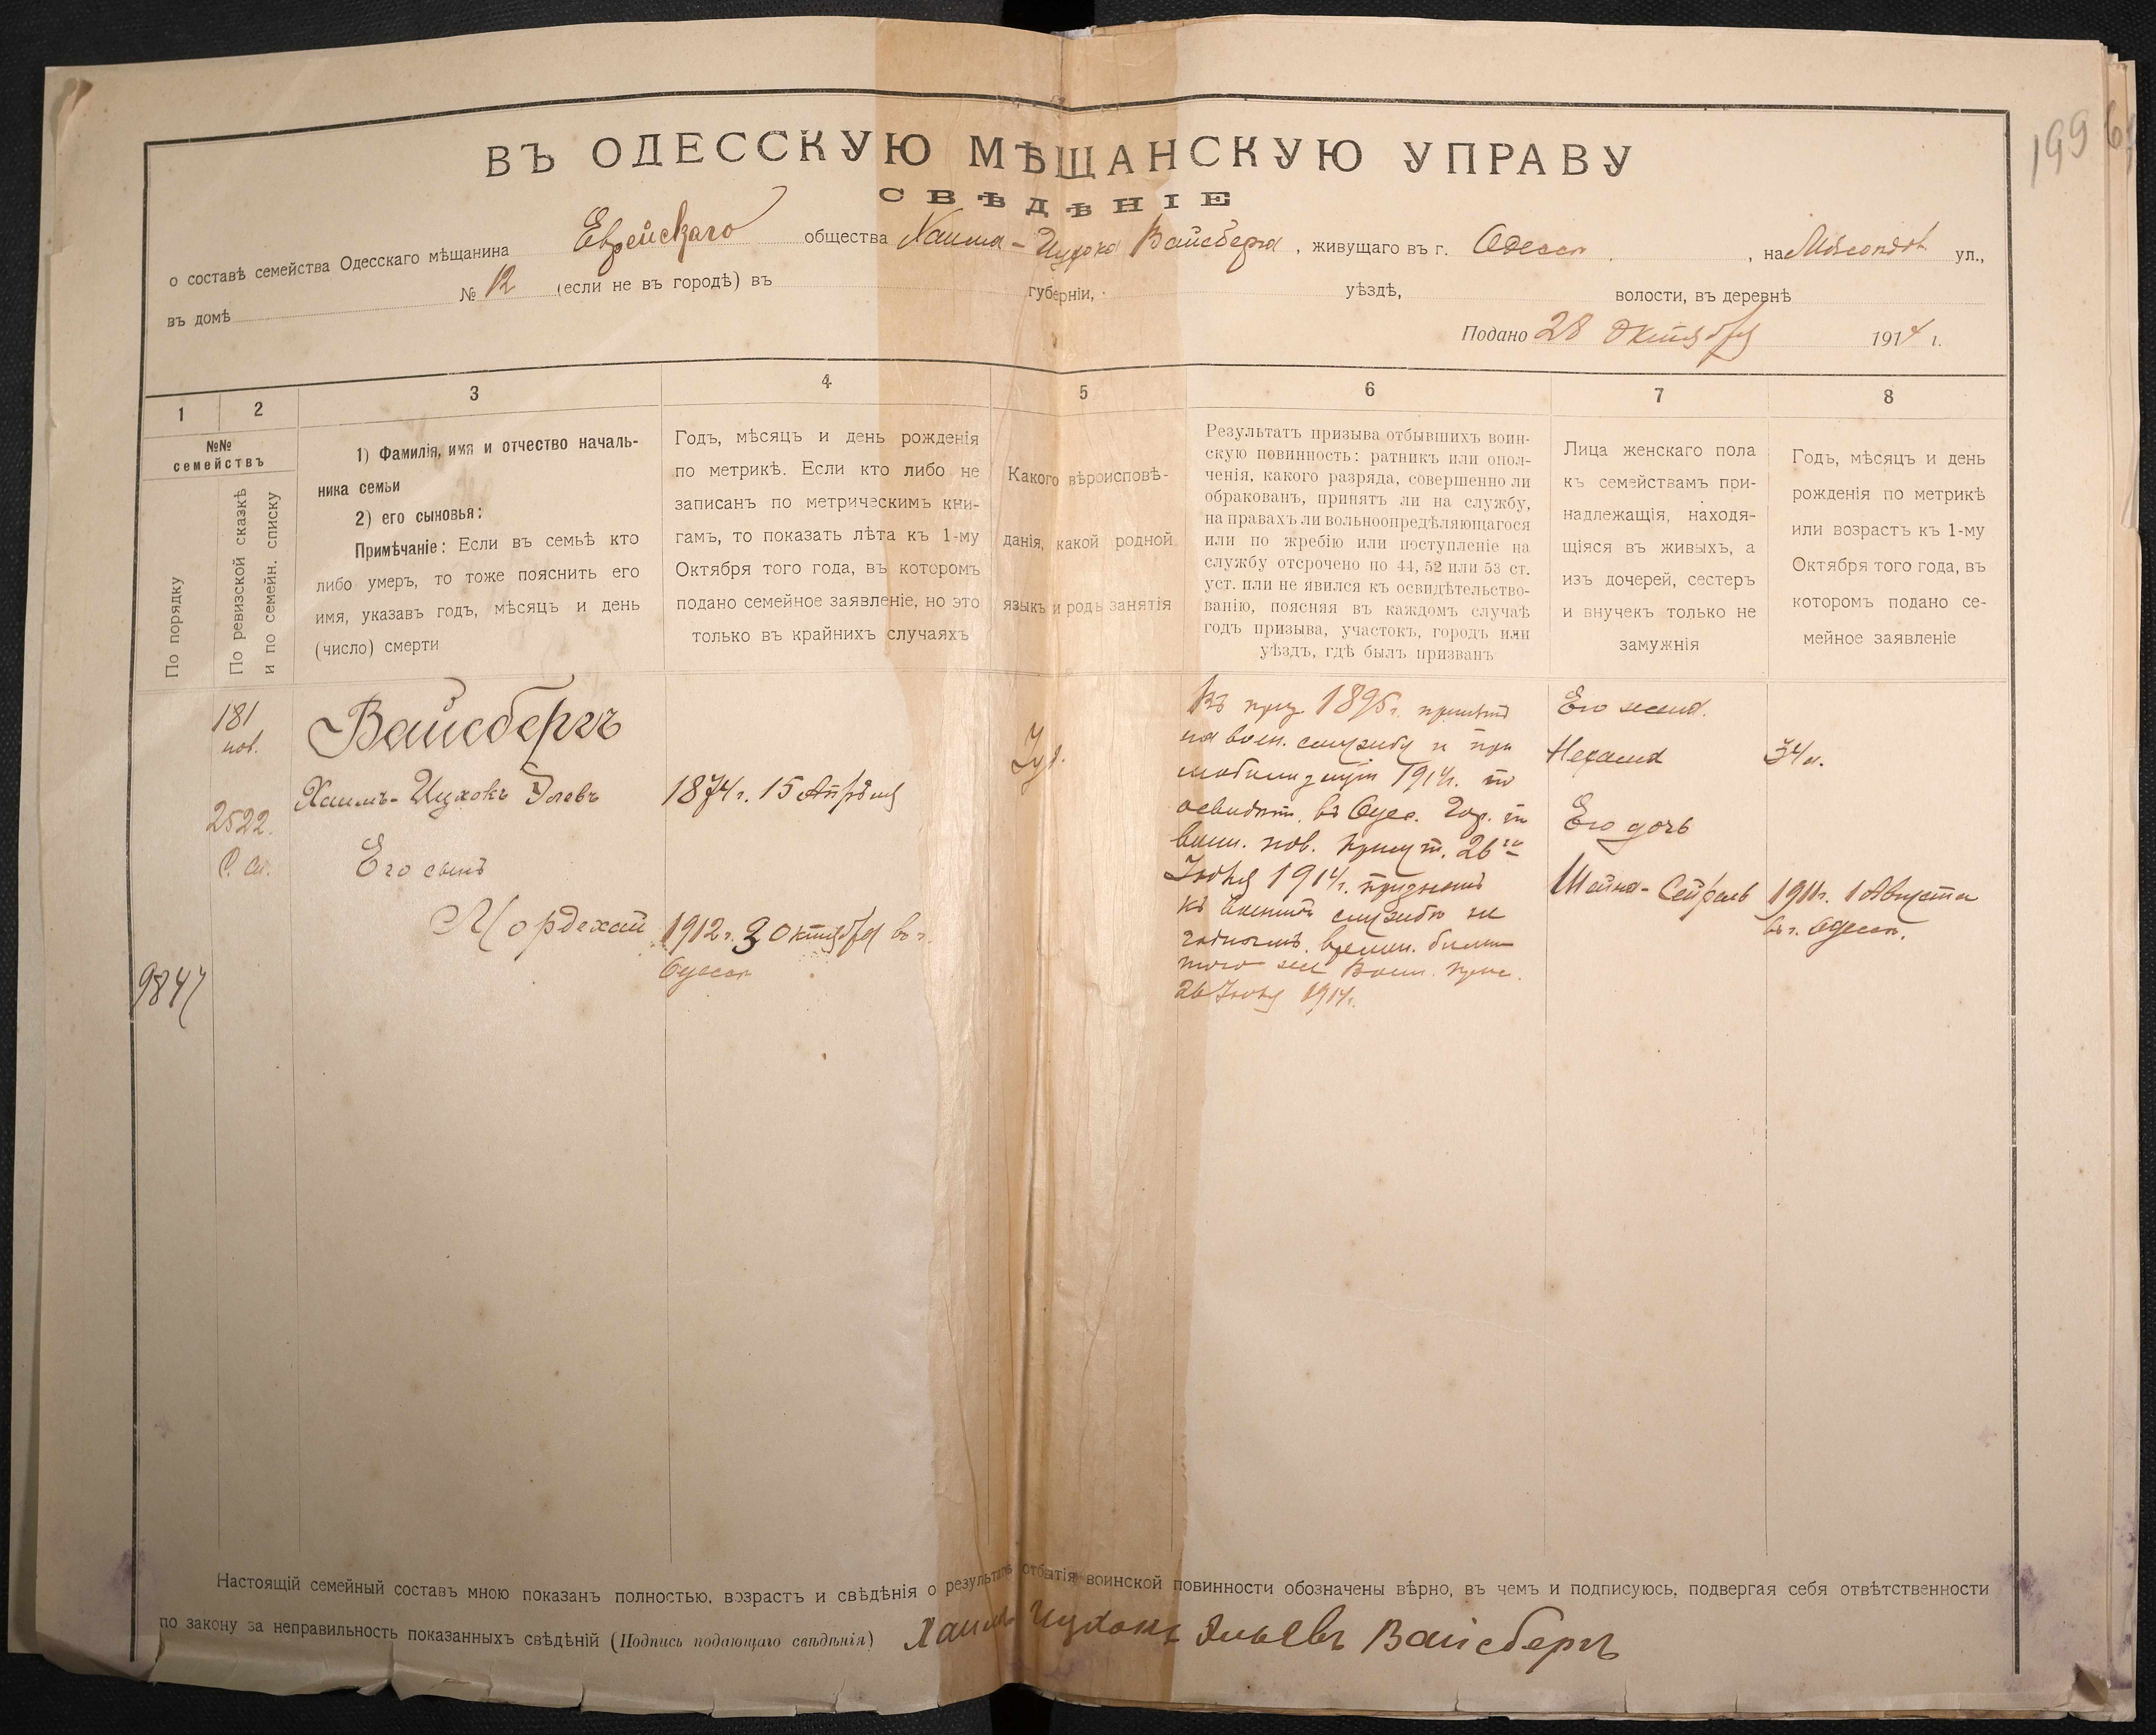 199
ВЪ ОДЕССКУЮ МѢЩАНСКУЮ УПРАВУ
СВѢДѢНІЕ
о составѣ семейства Одесскаго мѣщанина Еврейскаго общества Хаима-Ицхока Вайсберга, живущаго въ г. Одессѣ, на ул.,
въ домѣ № 12 (если не въ городѣ) въ губерніи, уѣздѣ, волости, въ деревнѣ
Подано 28 Октября 1914 г.
1
2
3
4
5
6
7
8
№№
семействъ
По порядку
По ревизской сказкѣ
и по семейн. списку
1) Фамилія, имя и отчество началь-
ника семьи
2) его сыновья:
Примѣчаніе: Если въ семьѣ кто
либо умеръ, то тоже пояснить его
имя, указавъ годъ, мѣсяцъ и день
(число) смерти
Годъ, мѣсяцъ и день рожденія
по метрикѣ. Если кто либо не
записанъ по метрическимъ кни-
гамъ, то показать лѣта къ 1-му
Октября того года, въ которомъ
подано семейное заявленіе, но это
только въ крайнихъ случаяхъ
Какого вѣроисповѣ-
данія, какой родной
языкъ и родъ занятія
Результатъ призыва отбывшихъ воин-
скую повинность: ратникъ или опол-
ченія, какого разряда, совершенно ли
обракованъ, принятъ ли на службу,
на правахъ ли вольноопредѣляющагося
или по жребію или поступленіе на
службу отсрочено по 44, 52 или 53 ст.
уст. или не явился къ освидѣтельство-
ванію, поясняя въ каждомъ случаѣ
годъ призыва, участокъ, городъ или
уѣздъ, гдѣ былъ призванъ
Лица женскаго пола
къ семействамъ при-
надлежащія, находя-
щіяся въ живыхъ, а
изъ дочерей, сестеръ
и внучекъ только не
замужнія
Годъ, мѣсяцъ и день
рожденія по метрикѣ
или возрастъ къ 1-му
Октября того года, въ
которомъ подано се-
мейное заявленіе
181
нов.
2522.
С. сп.
9847
Вайсбергъ
Хаимъ-Ицхокъ Элевъ
Его сынъ
Мордехай
1874 г. 15 Апрѣля
1912 г. 3 Октября въ г.
Одессѣ
Іуд.
Въ приз. 1895 г. принятъ
на воен. службу и при
мобилизаціи 1914 г. по
освидѣт. въ Одес. Гор. по
воин. пов. Присут. 26го
Іюля 1914 г. признанъ
къ военной службѣ не
годнымъ. времен. билет
того же Воин. Прис.
26 Іюля 1914 г.
Его жена.
Нехама
Его дочь
Шейна-Сейраль
34 л.
1911 г. 1 Августа
въ г. Одессѣ.
Настоящій семейный составъ мною показанъ полностью, возрастъ и свѣдѣнія о результатѣ отбытія воинской повинности обозначены вѣрно, въ чемъ и подписуюсь, подвергая себя отвѣтственности
по закону за неправильность показанныхъ свѣдѣній (Подпись подающаго свѣдѣнія) Хаимъ Ицхокъ Эльевъ Вайсбергъ